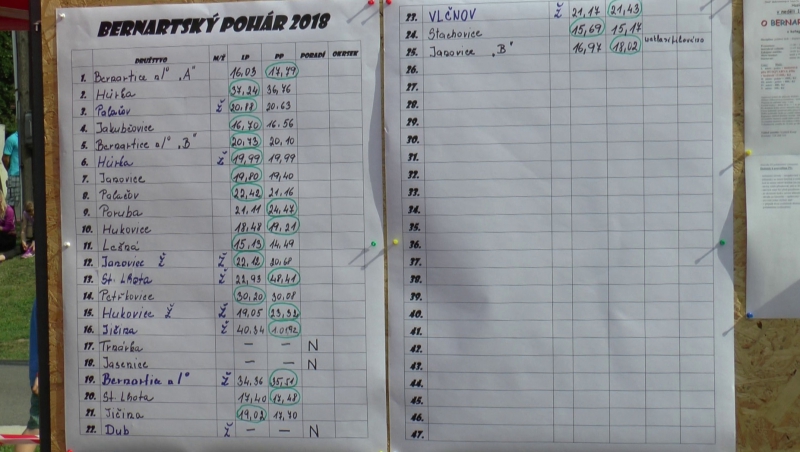 BERNARTSKÝ POHÁR 2018
DRUŽSTVO M/Ž LP PP POŘADÍ OKRSEK
1. Bernartice n/O „A" 16,03 17,79
2. Hůrka 37,24 36,76
3. Palačov Ž 20,88 20.63
4. Jakubčovice 16,70 16.56
5. Bernartice n/O „B" 20,73 20,10
6. Hůrka Ž 19,99 19,99
7. Janovice 19,80 19,40
8. Palačov 22,42 21.16
9. Poruba 21,11 24,47
10. Hukovice 18,48 19,21
11. Lešná 15,13 14,49
12. Janovice Ž Ž 22,12 20,68
13. St. Lhota Ž 22,93 48,41
14. Petřkovice 30,20 30,08
15. Hukovice Ž Ž 19,05 23,32
16. Jičina Ž 40.34
17. Trnávka – – N
18. Jasenice – – N
19. Bernartice n/O Ž 34,36 35,51
20. St. Lhota 17,40 17,48
21. Jičina 19,02 17,70
22. Dub Ž – – N
23. VLČNOV Ž 21,17 21,43
24. Stachovice 15,69 15,17
25. Janovice „B" 16,97 18,02
26.
27.
28.
29.
30.
31.
32.
33.
34.
35.
36.
37.
38.
39.
40.
41.
42.
43.
44.
45.
46.
47.
O BERNAR